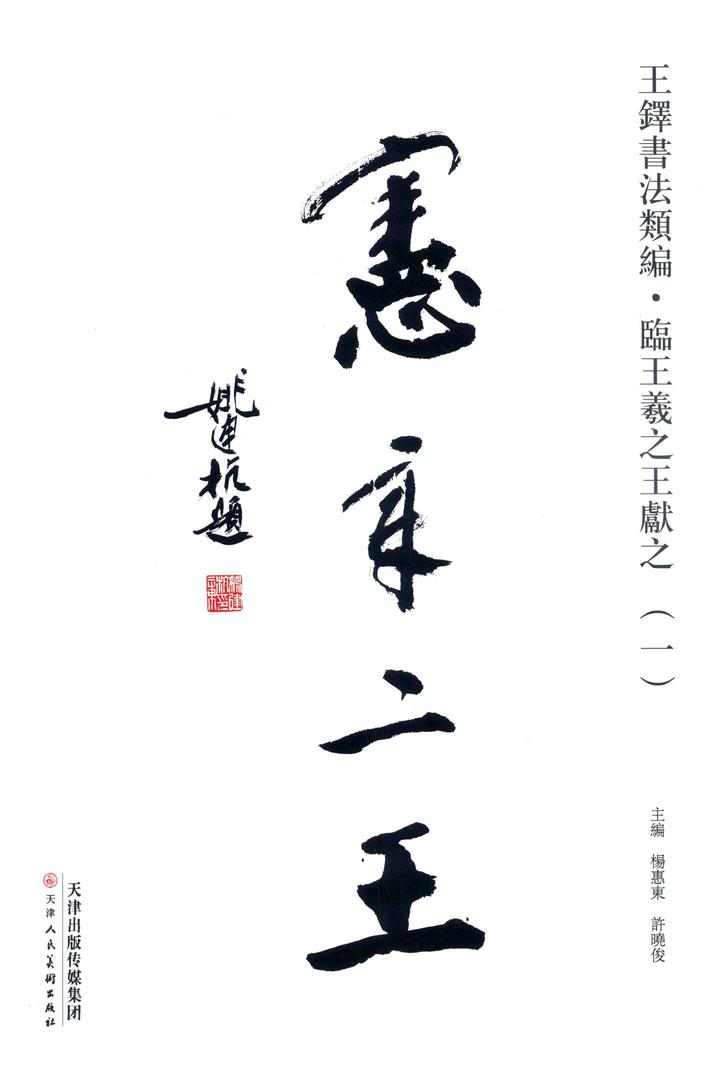 王鐸書法類編·臨王羲之王獻之（一）
主編 楊惠東 許曉俊
憲章二王
姚建杭題
天津出版传媒集团
天津人民美術出版社